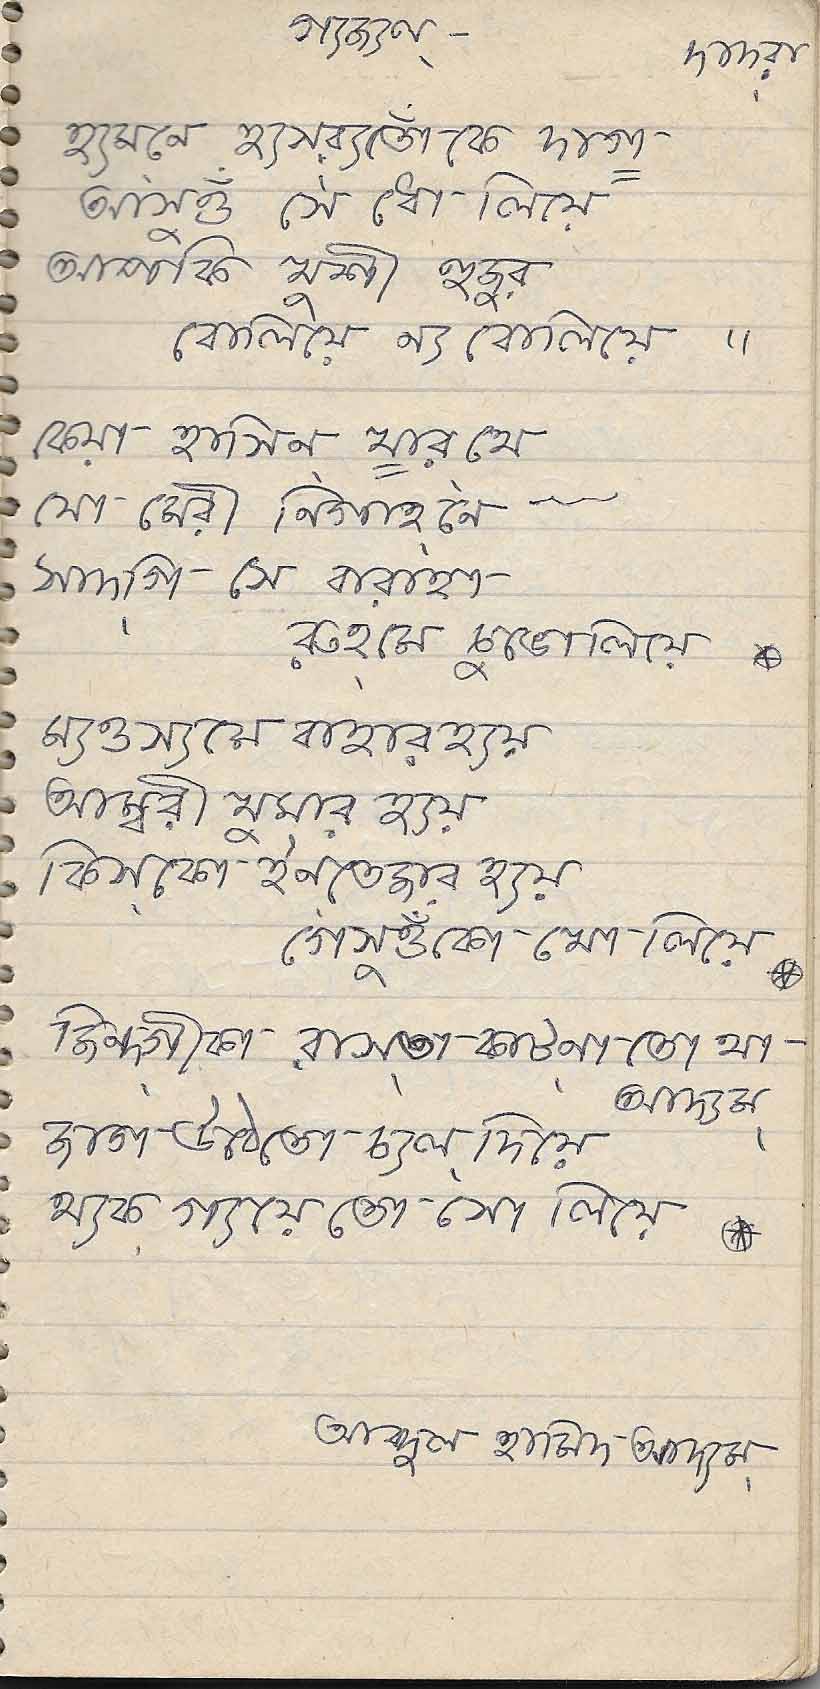 গ্যজ্যল্ -
দাদ্‌রা
হ্যমনে হ্যসর‍্যতোঁকে দাগ্
আঁসুওঁ সে ধো লিয়ে
আপকি খুশী হুজুর
বোলিয়ে ন্য বোলিয়ে ॥
কেয়া হাসিন্ খার থে
যো মেরী নিগাহ্ নে
সাদ্‌গি সে বারাহা
রূহ্‌মে চুভোলিয়ে
ম্যওস্যমে বাহার হ্যয়
আম্বরী খুমার হ্যয়
কিস্‌কো ইন্‌তেজার হ্যয়
গেসুওঁকো খো লিয়ে
জিন্দ্‌গীকা রাস্‌তা কাট্‌না তো থা
আদ্যম্
জাগ উঠে তো চ্যল্ দিয়ে
থ্যক্ গ্যয়ে তো সো লিয়ে
আব্দুল হামিদ আদ্যম্